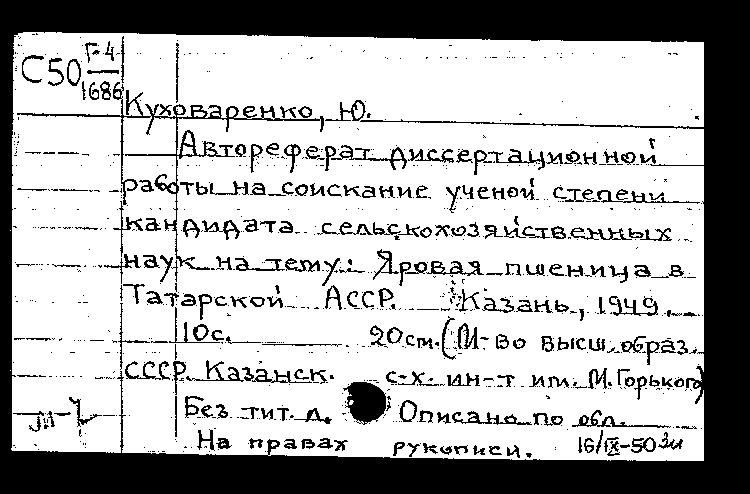 С50 Г-4
1686
Куховаренко, Ю.
Автореферат диссертационной
работы на соискание ученой степени
кандидата сельскохозяйственных
наук на тему: Яровая пшеница в
Татарской АССР. Казань, 1949.
10с. 20см. (М-во высш. образ.
СССР. Казанск. с-х. ин-т им. М.Горького)
Без тит. л. Описано по обл.
На правах рукописи. 16/IX-50